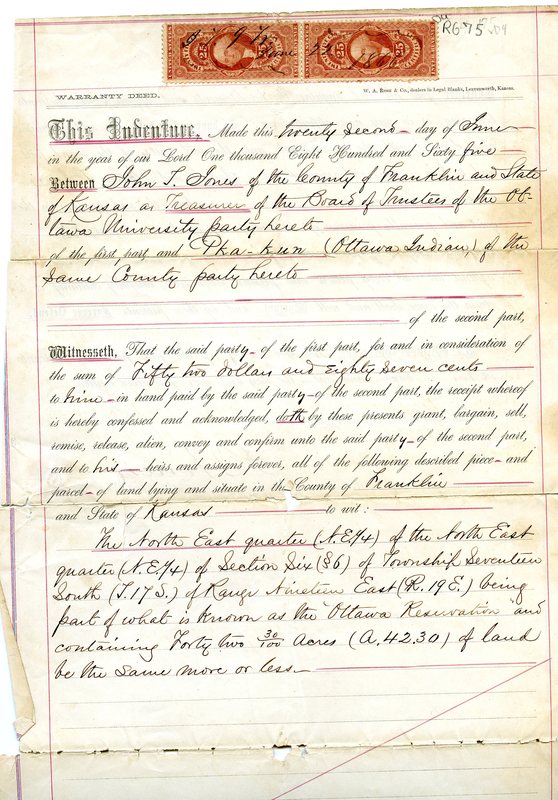 RG 75
25 25
1866
WARRANTY DEED.
W. A. Rose & Co., dealers in Legal Blanks, Leavenworth, Kansas.
This Indenture, Made this twenty second day of June
in the year of our Lord One thousand Eight Hundred and Sixty five
Between John T. Jones of the County of Franklin and State
of Kansas as Treasurer of the Board of Trustees of the Ot-
tawa University party hereto
of the first part, and Pka-kun (Ottawa Indian,) of the
Same County party hereto
of the second part,
Witnesseth, That the said party of the first part, for and in consideration of
the sum of Fifty two dollars and eighty seven cents
to him in hand paid by the said party of the second part, the receipt whereof
is hereby confessed and acknowledged, doth by these presents grant, bargain, sell,
remise, release, alien, convey and confirm unto the said party of the second part,
and to his heirs and assigns forever, all of the following described piece and
parcel of land lying and situate in the County of Franklin
and State of Kansas to wit:
The North East quarter (N.E.1/4) of the North East
quarter (N.E.1/4) of Section Six (§6) of Township Seventeen
South (T.17S.) of Range Nineteen East (R.19E.) being
part of what is known as the "Ottawa Reservation" and
containing Forty two 30/100 Acres (A.42.30) of land
be the same more or less.